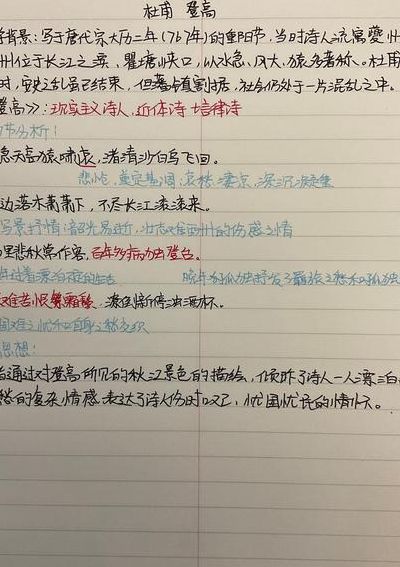 杜甫 登高
背景：写于唐代宗大历二年（767年）的重阳节，当时诗人流寓夔州
州位于长江之滨、瞿塘峡口，以水急、风大、猿多著称。杜甫
时，安史之乱虽已结束，但藩镇割据，社会仍处于一片混乱之中。
登高》：现实主义诗人，近体诗 七言律诗
节分析：
急天高猿啸哀，渚清沙白鸟飞回。
悲怆，奠定基调，哀愁凄凉，深沉凝重
边落木萧萧下，不尽长江滚滚来。
写景抒情：韶光易逝，壮志难酬的伤感之情
里悲秋常作客，百年多病独登台。
难苦恨繁霜鬓，潦倒新停浊酒杯。
国难之忧和自身之愁交织
思想：
通过对登高所见的秋江景色的描绘，倾诉了诗人一人漂泊
愁的复杂情感 表达了诗人伤时，忧国忧民的情怀。